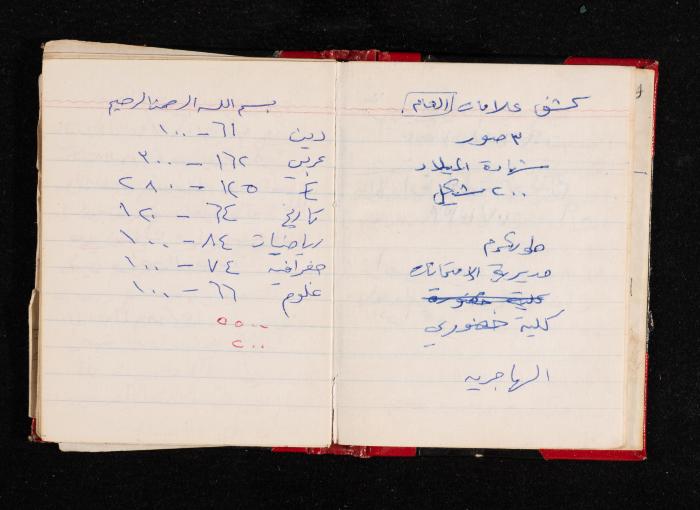 كشف علامات (العام)
٣ صور
شهادة الميلاد
٢٠٠ شيكل
طولكرم
مديرية الامتحانات
كلية خضوري
الهاجريه
بسم الله الرحمن الرحيم
دين ٦١ - ١٠٠
عربي ١٦٢ - ٣٠٠
E ١٢٥ - ٢٨٠
تاريخ ٦٤ - ١٢٠
رياضيات ٨٤ - ١٠٠
جغرافية ٧٤ - ١٠٠
علوم ٦٦ - ١٠٠
٥٥٠٠
٢٠٠